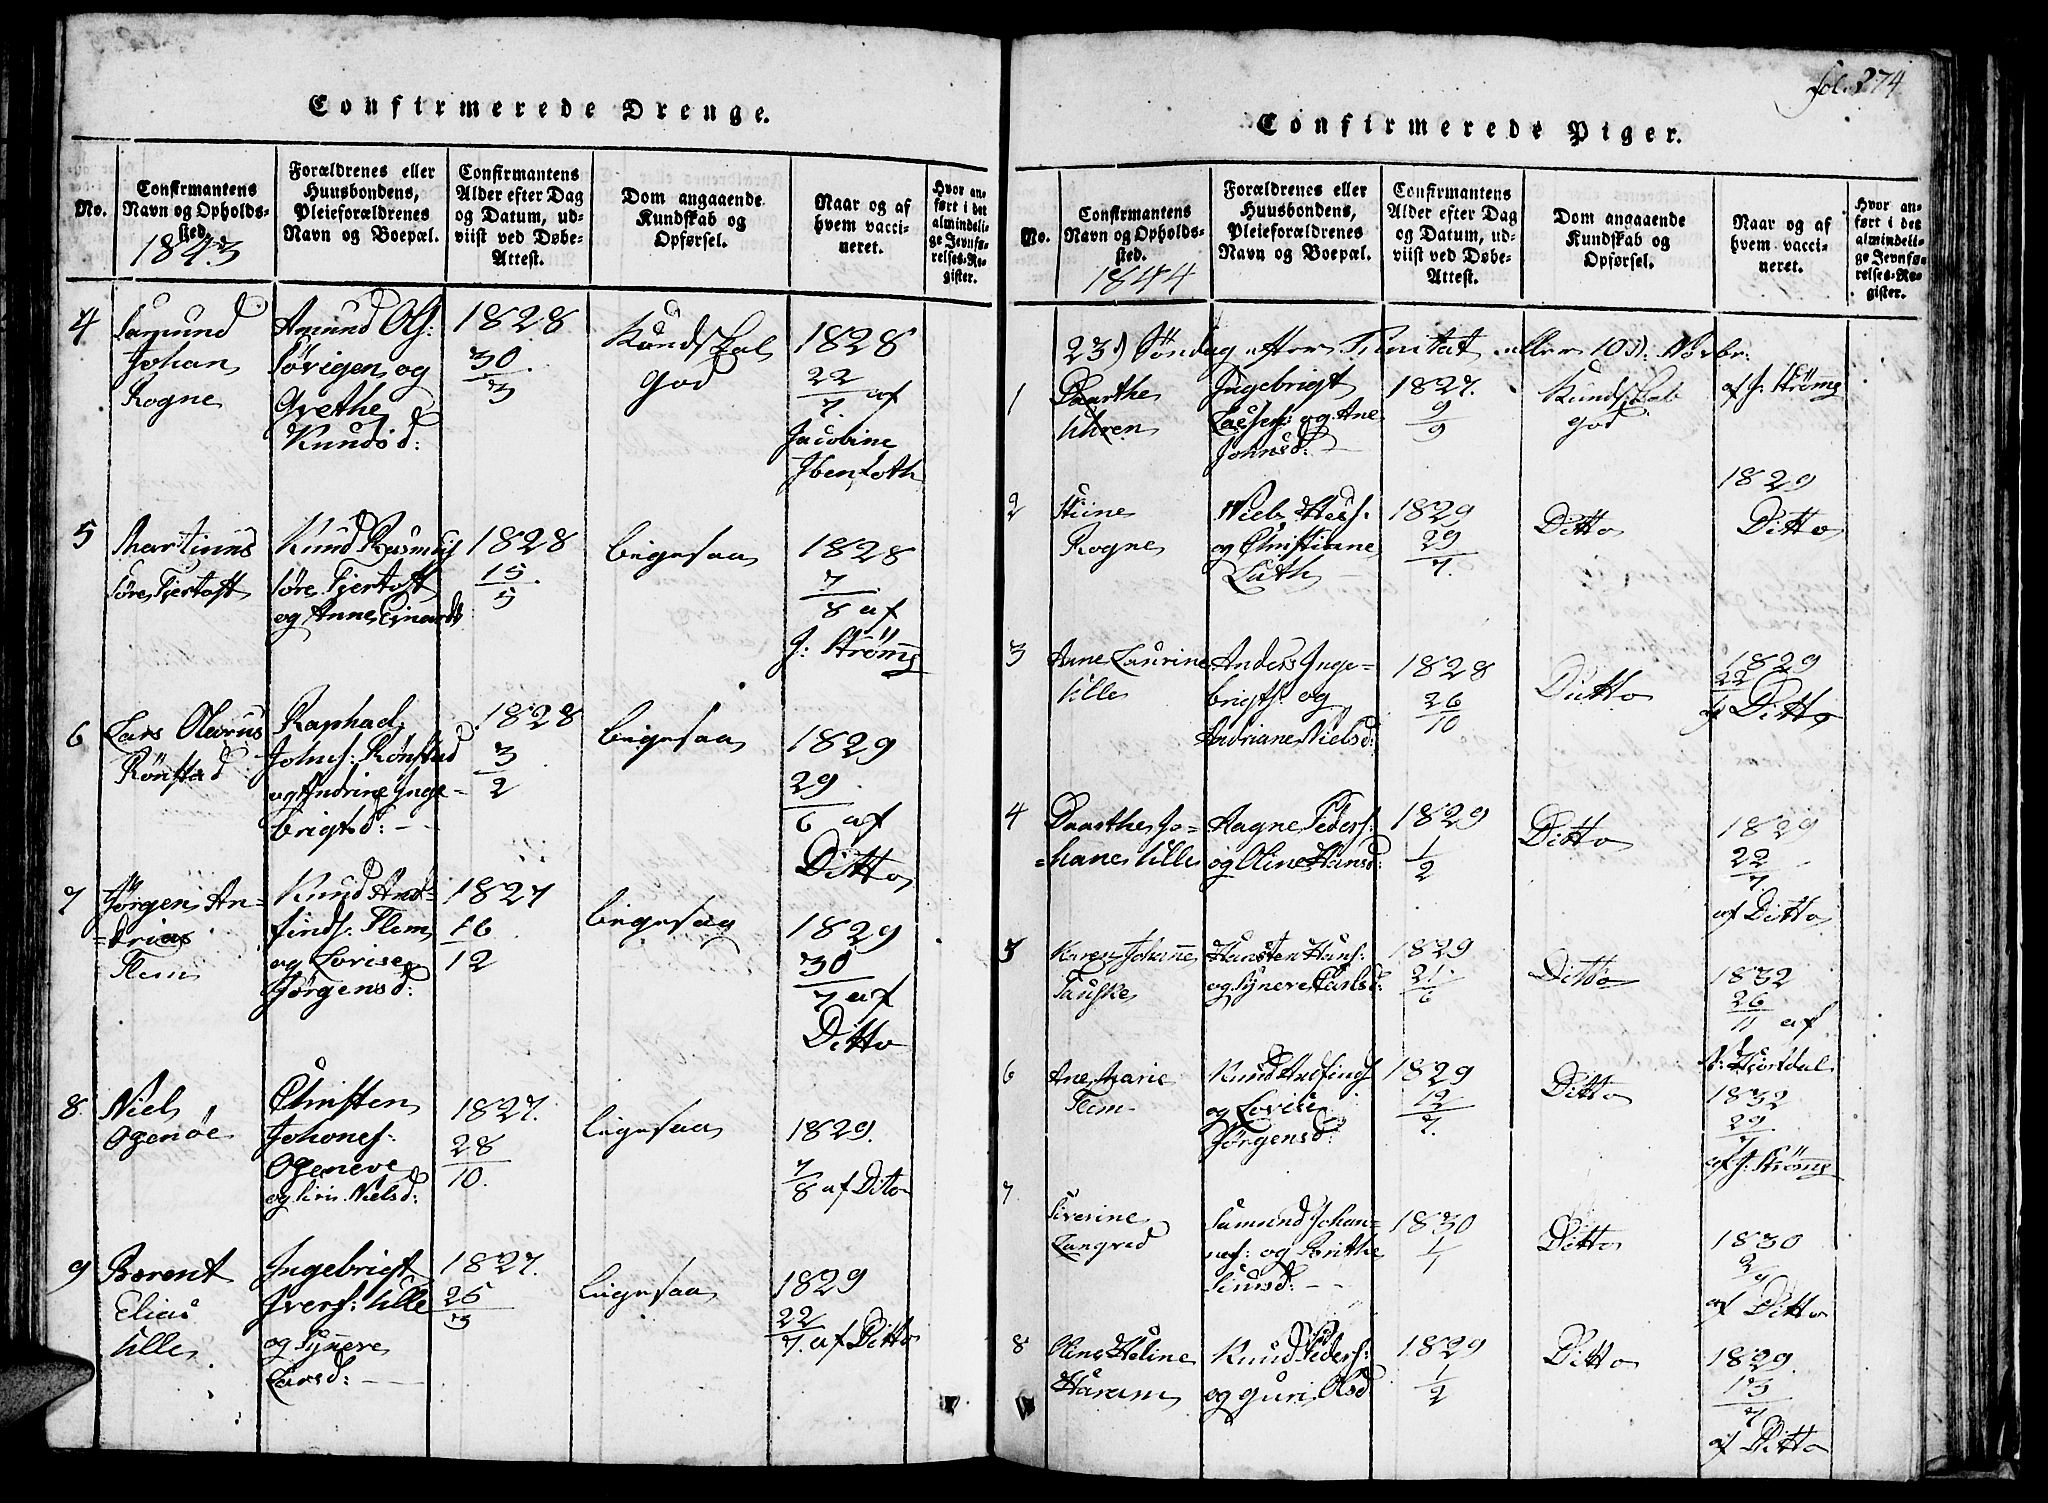 Confirmerede Drenge.
No.
Confirmantens Navn og Opholds-sted.
1843
Forældrenes eller Huusbondens, Pleieforældrenes Navn og Boepæl.
Confirmantens Alder efter Dag og Datum, ud-viist ved Døbe-Attest.
Dom angaaende Kundskab og Opførsel.
Naar og af hvem vacci-neret.
Hvor an-ført i det almindeli-ge Jevnfø-relses-Re-gister.
4
Samund
Johan
Rogne
Amund Ols:
Sørigen og
Grethe
Knudsd:
1828
30
3
Kundskab
god
1828
22
7. af
Jacobine
Ibenfoth
5
Martinus
Søre Fjertoft
Knud Rasmus
Søre Fjertoft
og Anne Einards
1828
15
5
ligesaa
1828
7
8 af
J: Strøms
6
Lars Olarus
Rønstad
Raphael
Johns: Rønstad
og Andrine Inge-
brigtsd:
1828
3
2
ligesaa
1829
29
6 af
Ditto
7
Jørgen An-
-drias
Flem
Knud And-
finds: Flem
og Lovise
Jørgensd:
1827
16
12
ligesaa
1829
30
7 af
Ditto
8.
Niels
Ogenøe
Christen
Johanes:
Ogeneve
og Siri Nielsd:
1827.
28
10.
ligesaa
1829.
7
8 af Ditto
9
Berent
Elias
Ulle
Ingebrigt
Ivers: Ulle
og Synere
Larsd:
1827.
25
3
ligesaa
1829
22
7. af Ditto
fol. 274
Confirmerede Piger.
No.
Confirmantens Navn og Opholds-sted.
1844
Forældrenes eller Huusbondens, Pleieforældrenes Navn og Boepæl.
Confirmantens Alder efter Dag og Datum, ud-viist ved Døbe-Attest.
Dom angaaende Kundskab og Opførsel.
Naar og af hvem vacci-neret.
Hvor an-ført i det almindeli-ge Jevnfø-relses-Re-gister.
23d Søndag efter Trinitat. eller 10d: Novbr:
1
Daarthe
Uhren
Ingebrigt
Larsen og Ane
Johnsd:
1827.
9
9
Kundskab
god
af J. Strøms
1829
2
Stine
Rogne
Niels Hess:
og Christianne
Luth
1829
29
7.
Ditto
Ditto
3
Anne Laurine
Ulle
Anders Inge-
brigts. og
Andriane Nielsd:
1828
26
10
Ditto
1829
22
af Ditto
4
Daarthe Jo-
-hane Ulle
Aagne Peders:
og Oline Hansd:
1829
1
2
Ditto
1829
22
7
af Ditto
5
Karen Johanne
Tauske
Karsten Hans:
og Synere Carlsd:
1829
21
6
Ditto
1832
26
11 af
Hiortdal
6
Ane Marie
Flem
Knud Andfinds
og Lovise
Jørgensd:
1829
12
7.
Ditto
1832
29
7
af J: Strøms
7
Siverine
Langved
Samund Johan-
nes: og Brithe
Siursd:
1830
1
1
Ditto
1830
af Ditto
8
Oline Heline
Haram
Knud Peders:
og Guri Olsd
1829
1
2
Ditto
1829.
13
7
af Ditto